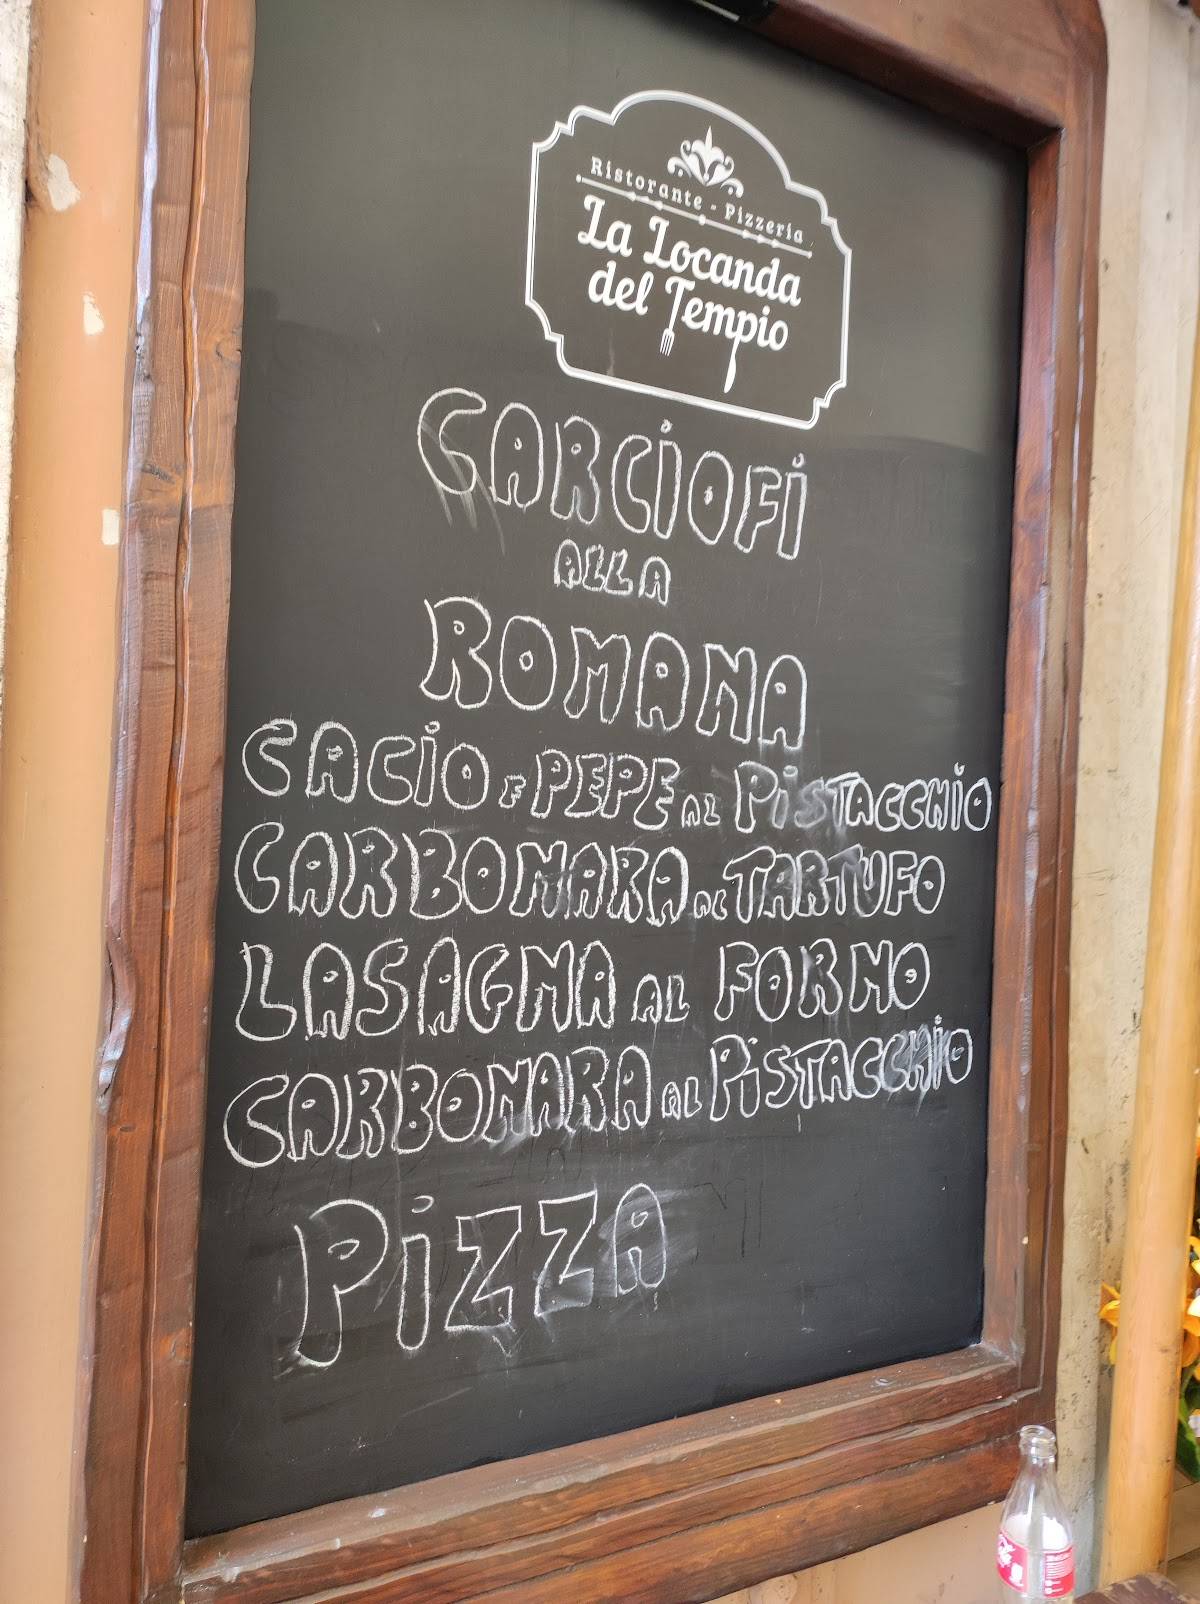 Ristorante - Pizzeria
La Locanda
del Tempio
CARCIOFI
ALLA
ROMANA
CACIO E PEPE AL PISTACCHIO
CARBONARA AL TARTUFO
LASAGNA AL FORNO
CARBONARA AL PISTACCHIO
PIZZA